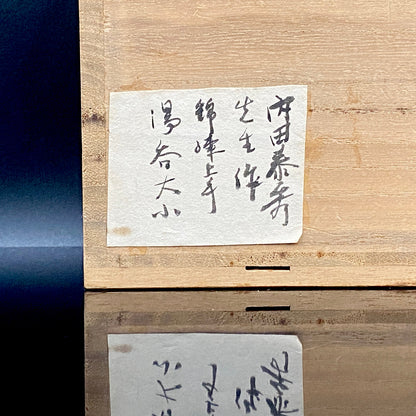 内田泰秀
先生作
錦陣上手
湯呑大小